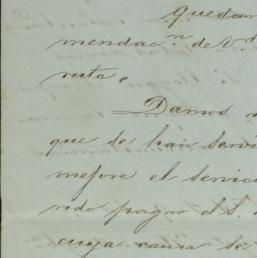 quedan
mendac.n de V.d
ruta.
Damos
que se han servi
mejore el servic
rido pagno el S.
cuya causa se